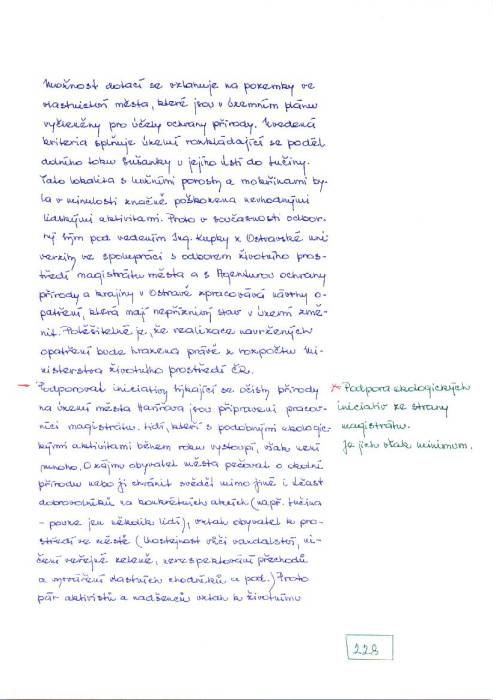 Možnost dotací se vztahuje na pozemky ve
vlastnictví města, které jsou v územním plánu
vyčleněny pro účely ochrany přírody. Uvedená
kriteria splňuje území rozkládající se podél
dolního toku Sušanky u jejího ústí do Lučiny.
Tato lokalita s lužními porosty a mokřinami by-
la v minulosti značně poškozena nevhodnými
lidskými aktivitami. Proto v současnosti odbor-
ný tým pod vedením Ing. Kupky z Ostravské uni
verzity ve spolupráci s odborem životního pros-
tředí magistrátu města a s Agenturou ochrany
přírody a krajiny v Ostravě zpracovává návrhy o-
patření, která mají nepříznivý stav v území změ-
nit. Potěšitelné je, že realizace navržených
opatření bude hrazena právě z rozpočtu Mi-
nisterstva životního prostředí ČR.
→ Podporovat iniciativy týkající se očisty přírody
na území města Havířova jsou připraveni pracov-
níci magistrátu. Lidí, kteří s podobnými ekologic-
kými aktivitami během roku vystoupí, však není
mnoho. O zájmu obyvatel města pečovat o okolní
přírodu nebo ji chránit svědčí mimo jiné i účast
dobrovolníků na konkrétních akcích (např. Lučina
- pouze jen několik lidí), vztah obyvatel k pro-
středí ve městě (lhostejnost vůči vandalství, ni-
čení veřejné zeleně, nerespektování přechodů
a vytváření vlastních chodníků a pod.) Proto
pár aktivistů a nadšenců vztah k životnímu
Podpora ekologických
iniciativ ze strany
magistrátu.
Je jich však minimum.
228